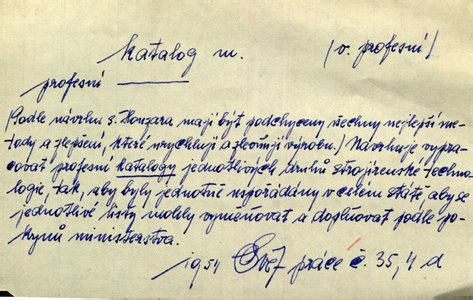 katalog m. (v. profesní)
profesní
(Podle návrhu s. Konzara mají být podchyceny všechny nejlepší me-
tody a zlepšení, které urychlují a zlevňují výrobu.) Navrhuje vypra-
covat profesní katalogy jednotlivých druhů strojírenské techno-
logie, tak, aby byly jednotně uspořádány v celém státě, aby se
jednotlivé listy mohly vyměňovat a doplňovat podle po-
kynů ministerstva.
1954 Svět práce č. 35, 4 d